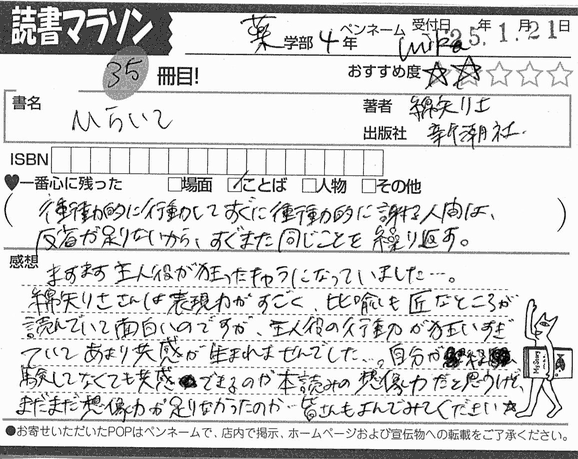 読書マラソン
薬学部4年 ペンネーム mika 受付日 '25年1月21日
35冊目! おすすめ度★★☆☆☆
書名 ひらいて
著者 綿矢りさ
出版社 新潮社.
ISBN
♥一番心に残った □場面 ☑ことば □人物 □その他
(衝動的に行動してすぐに衝動的に謝る人間は、
反省が足りないから、すぐまた同じことを繰り返す。)
感想
ますます主人役が狂ったキャラになっていました…。
綿矢りささんは表現力がすごく、比喩も匠なところが
読んでいて面白いのですが、主人役の行動が狂いすぎ
ていてあまり共感が生まれませんでした…。自分が経
験してなくても共感できるのが本読みの想像力だと思うけど、
まだまだ想像力が足りなかったのか…皆さんもよんでみてください☆
●お寄せいただいたPOPはペンネームで、店内で掲示、ホームページおよび宣伝物への転載をご了承ください。